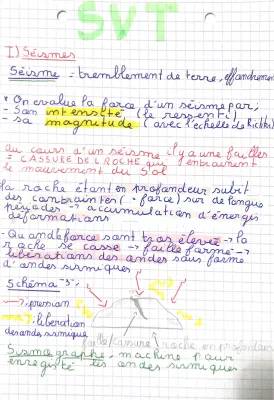 SVT
I) Séismes
Séisme : tremblement de terre, effondrement
* On evalue la force d'un séisme par;
- Son intensité (le ressenti)
- sa magnitude (avec l'echelle de Richter)
au cours d'un séisme il y a une failles
= CASSURE DE LA ROCHE qui entrainent
le mouvement du Sol
la roche étant en profondeur subit
des contraintes (= force) sur de longue
periodes → accumulation d'énergies
déformations
- Quand force sont trop élevée → la
roche se casse → faille forme →
libérations des ondes sous forme
d'ondes sismiques
Schéma
→ pression
→ libération
des ondes sismiques
faille/cassure roche en profondeur
Sismographe : machine pour
enregistré les ondes sismiques